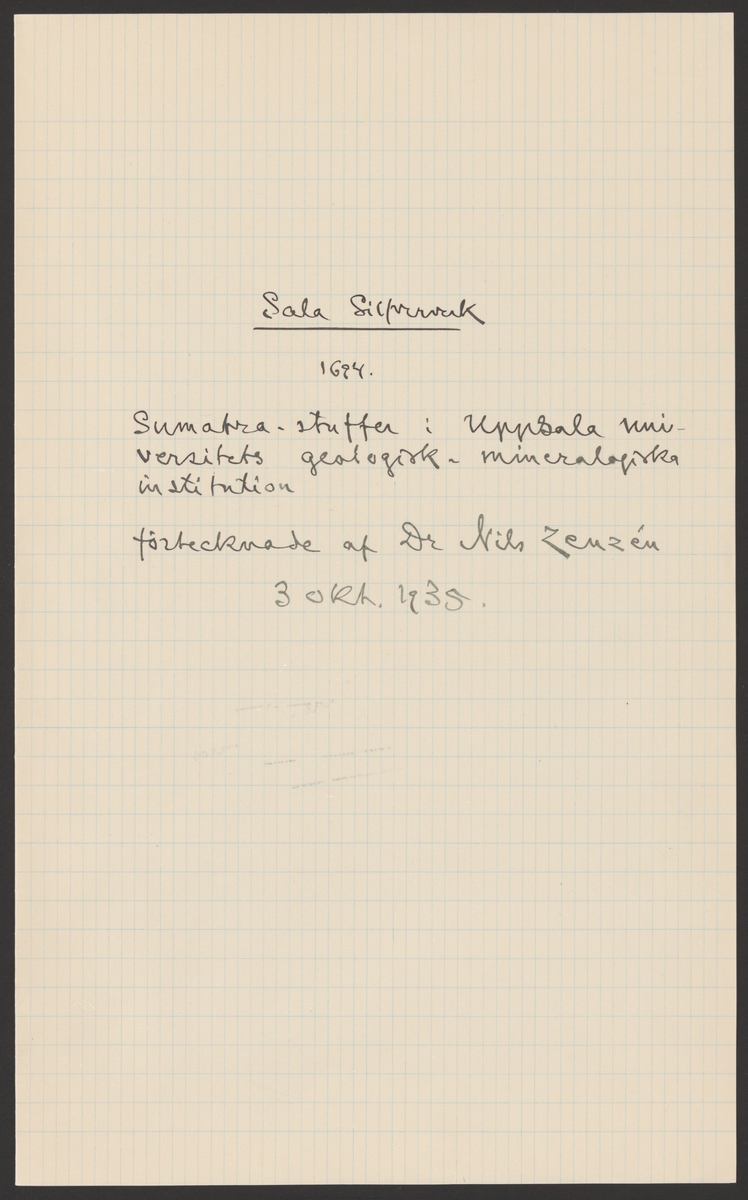 Sala Silfververk
1694.
Sumatra-stuffer i Uppsala uni-
versitets geologisk-mineralogiska
institution
förtecknade af Dr Nils Zenzén
3 okt. 1935.